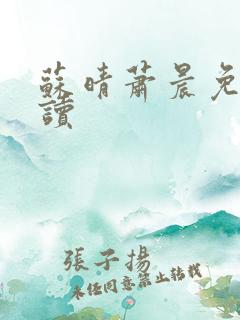 蘇晴蕭晨免
讀
張子揚
未經同意禁止轉載